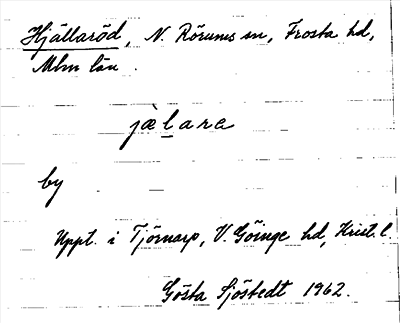 Hjällaröd, N. Rörums sn, Frosta hd,
Mlm län.
jæ̀lare
by
Uppt. i Tjörnarp, V. Göinge hd, Krist. l.
Gösta Sjöstedt 1962.